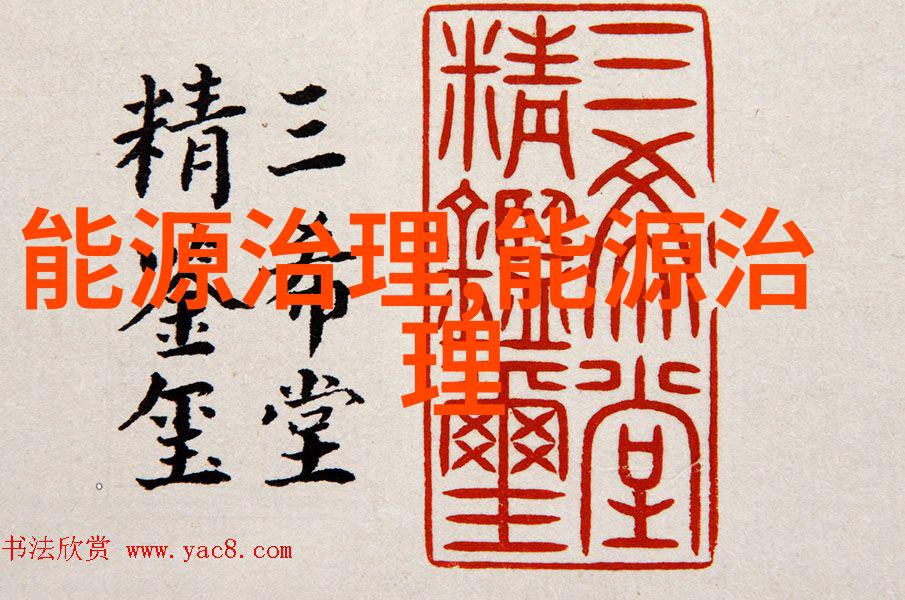 三希堂
精鑑璽
三希堂
精鉴玺
能源治理,能源治
理
书法欣赏 www.yac8.com